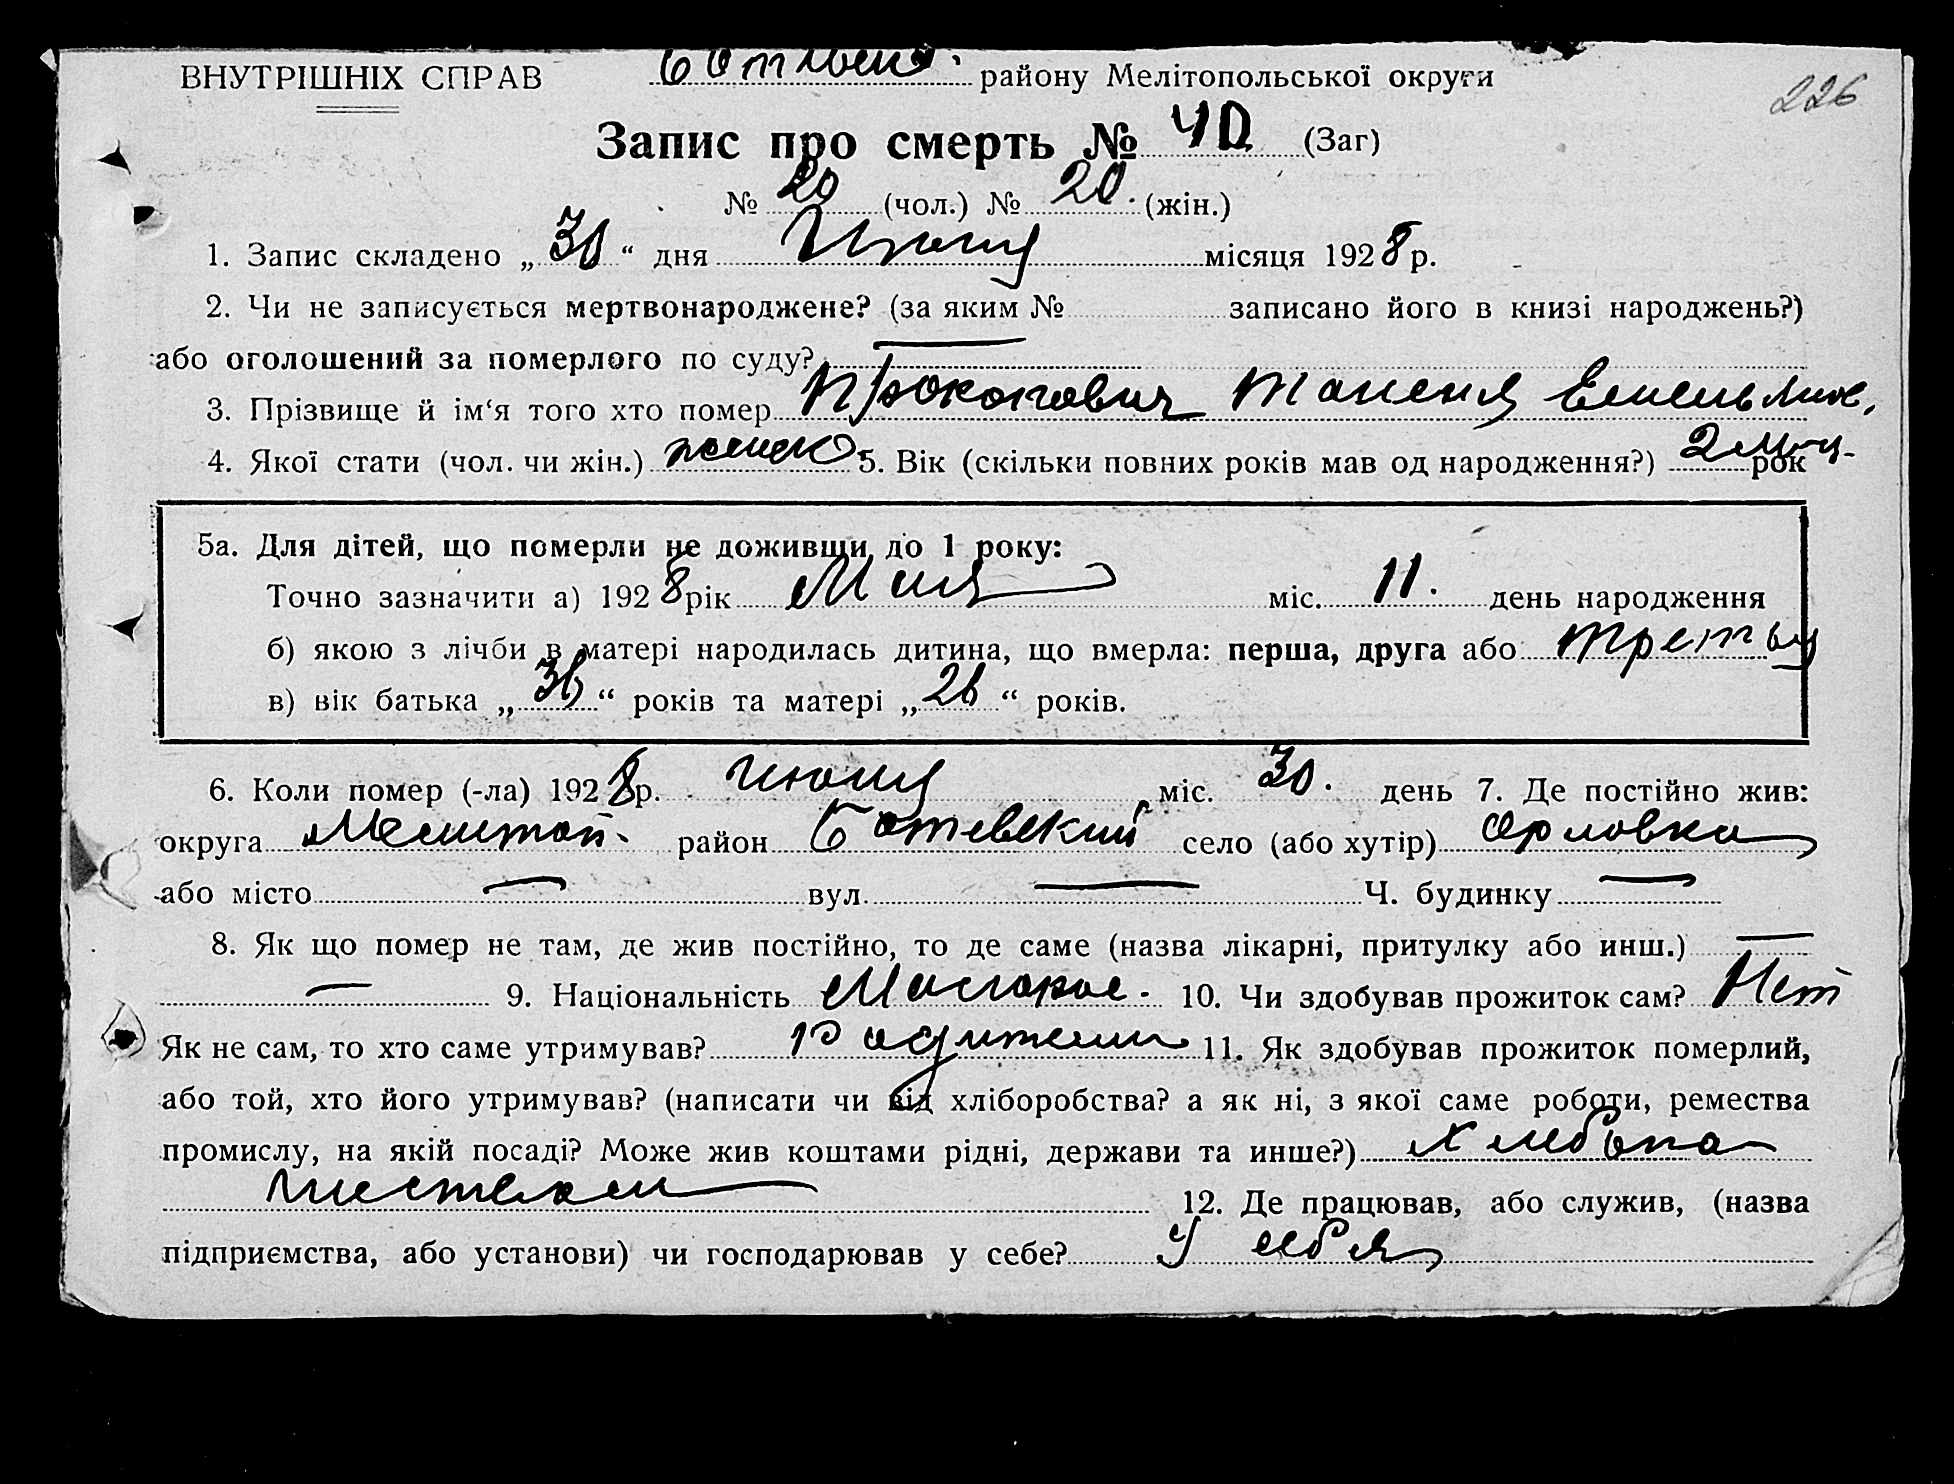 ВНУТРІШНІХ СПРАВ району Мелітопольської округи
226
Запис про смерть № 40 (Заг)
№ 20 (чол.) № 20. (жін.)
1. Запис складено „ 30 “ дня Июня місяця 1928 р.
2. Чи не записується мертвонароджене? (за яким № записано його в книзі народжень?)
або оголошений за померлого по суду? —
3. Прізвище й ім‘я того хто помер Прокопович
4. Якої статі (чол. чи жін.) женско 5. Вік (скільки повних років мав од народження?) 2 мец. рок
5а. Для дітей, що померли не доживши до 1 року:
Точно зазначити а) 1928 рік Мая міс. 11. день народження
б) якою з лічби в матері народилась дитина, що вмерла: перша, друга або третья
в) вік батька „ 36 “ років та матері „ 26 “ років.
6. Коли помер (-ла) 1928 р. июня міс. 30. день 7. Де постійно жив:
округа Мелитоп. район Ботиевский село (або хутір) Орловка
або місто — вул. — Ч. будинку —
8. Як що помер не там, де жив постійно, то де саме (назва лікарні, притулку або инш.) —
— 9. Національність 10. Чи здобував прожиток сам? Нет
Як не сам, то хто саме утримував? Родители 11. Як здобував прожиток померлий,
або той, хто його утримував? (написати чи від хліборобства? а як ні, з якої саме роботи, ремества
промислу, на якій посаді? Може жив коштами рідні, держави та инше?) Хлебопа
шеством 12. Де працював, або служив, (назва
підприємства, або установи) чи господарював у себе? У себя